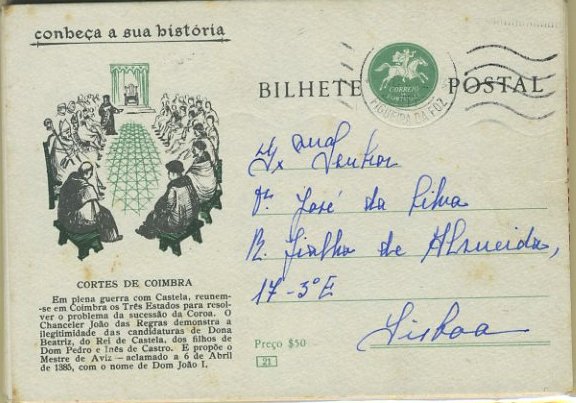 conheça a sua história
BILHETE POSTAL
CORREIO
PORTUGAL
FIGUEIRA DA FOZ
Exmo Senhor
Dr. José da Silva
R. Fialho de Almeida,
17-3ºE
Lisboa
CORTES DE COIMBRA
Em plena guerra com Castela, reunem-
-se em Coimbra os Três Estados para resol-
ver o problema da sucessão da Coroa. O
Chanceler João das Regras demonstra a
ilegitimidade das candidaturas de Dona
Beatriz, do Rei de Castela, dos filhos de
Dom Pedro e Inês de Castro. E propõe o
Mestre de Aviz — aclamado a 6 de Abril
de 1385, com o nome de Dom João I.
Preço $50
21